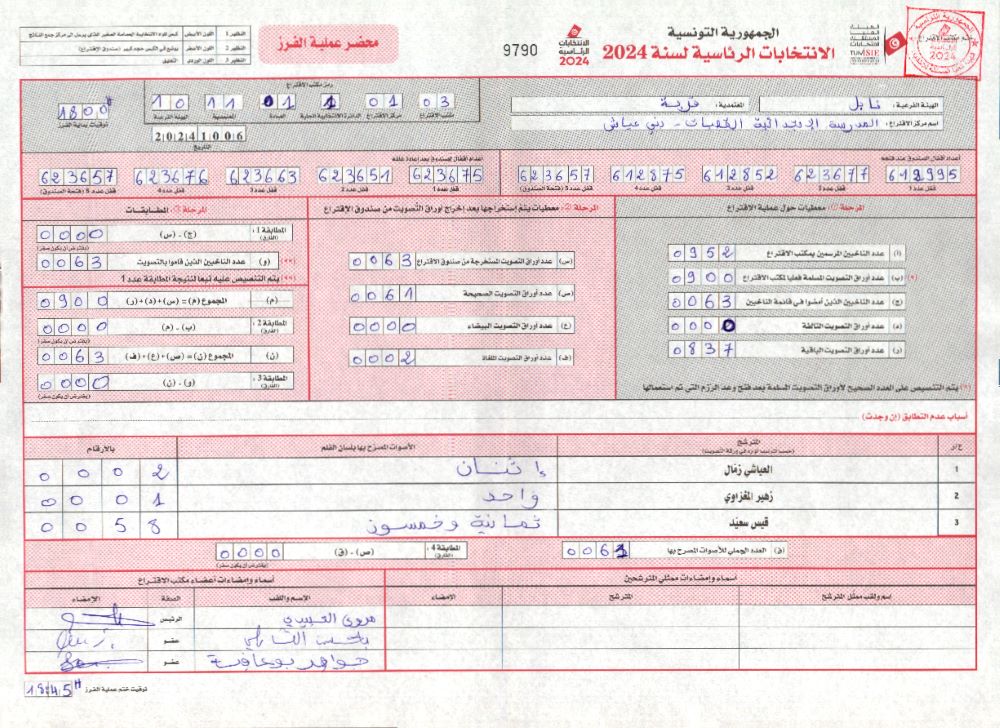 الجمهورية التونسية
الانتخابات الرئاسية لسنة 2024
الانتخابات الرئاسية 2024
9790
محضر عملية الفرز
النظير 1 اللون الأبيض
النظير 2 اللون الأسود يوضع في الكيس حجم كبير (صندوق الإقتراع)
النظير 3 اللون الوردي التعليق
الهيئة الفرعية : نابل
المعتمدية : قربة
اسم مركز الاقتراع : المدرسة الابتدائية القصبات - بني عياش
رمز مكتب الإقتراع
03 01 1 01 11 10
مكتب الاقتراع مركز الاقتراع الدائرة الانتخابية المحلية العمادة المعتمدية الهيئة الفرعية
18 00 H
توقيت بداية الفرز
20241006
التاريخ
أعداد أقفال الصندوق عند فتحه
612995 623677 612852 612875 623657
قفل عدد 1 قفل عدد 2 قفل عدد 3 قفل عدد 4 قفل عدد 5 (فتحة الصندوق)
أعداد أقفال الصندوق بعد إعادة غلقه
623675 623651 623663 623676 623657
قفل عدد 1 قفل عدد 2 قفل عدد 3 قفل عدد 4 قفل عدد 5 (فتحة الصندوق)
المرحلة 1 : معطيات حول عملية الاقتراع
(أ) عدد الناخبين المرسمين بمكتب الاقتراع 0952
(ب) عدد أوراق التصويت المسلمة فعليا لمكتب الاقتراع 0900
(ج) عدد الناخبين الذين أمضوا في قائمة الناخبين 0063
(د) عدد أوراق التصويت التالفة 0000
(ر) عدد أوراق التصويت الباقية 0837
(*) يتم التنصيص على العدد الصحيح لأوراق التصويت المسلمة بعد فتح وعد الرزم التي تم استعمالها
المرحلة 2 : معطيات يتم إستخراجها بعد إخراج أوراق التصويت من صندوق الاقتراع
(س) عدد أوراق التصويت المستخرجة من صندوق الاقتراع 0063
(ص) عدد أوراق التصويت الصحيحة 0061
(ع) عدد أوراق التصويت البيضاء 0000
(ف) عدد أوراق التصويت الملغاة 0002
المرحلة 3 : المطابقات
المطابقة 1 : (الفارق) (ج) - (س) 0000
(يفترض أن يكون صفر)
(و) عدد الناخبين الذين قاموا بالتصويت 0063
(**) يتم التنصيص عليه تبعا لنتيجة المطابقة عدد 1
(م) المجموع (م) = (س)+(د)+(ر) 0900
المطابقة 2 : (الفارق) (ب) - (م) 0000
(يفترض أن يكون صفر)
(ن) المجموع (ن) = (ص)+(ع)+(ف) 0063
المطابقة 3 : (الفارق) (و) - (ن) 0000
(يفترض أن يكون صفر)
أسباب عدم التطابق (إن وجدت)
ع/ر المترشح الأصوات المصرح بها بلسان القلم بالأرقام
(حسب الترتيب الوارد في ورقة التصويت)
1 العياشي زمّال إثنان 0002
2 زهير المغزاوي واحد 0001
3 قيس سعيّد ثمانية وخمسون 0058
(ق) العدد الجملي للأصوات المصرح بها 0061
المطابقة 4 : (الفارق) (ص) - (ق) 0000
(يفترض أن يكون صفر)
أسماء وإمضاءات ممثلي المترشحين
إسم ولقب ممثل المترشح المترشح الامضاء
أسماء وإمضاءات أعضاء مكتب الاقتراع
الإسم واللقب الصفة الإمضاء
مروى العبيدي الرئيس
عضو
جواهر بوعافية عضو
توقيت ختم عملية الفرز 18 45 H